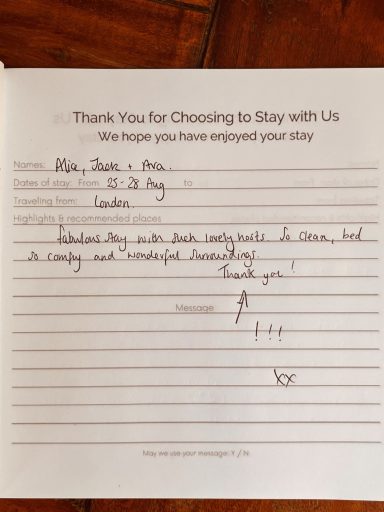 Thank You for Choosing to Stay with Us
We hope you have enjoyed your stay
Names: Alia, Jack + Ava.
Dates of stay: From 25-28 Aug to
Traveling from: London.
Highlights & recommended places
fabulous stay with such lovely hosts. So clean, bed
so comfy and wonderful surroundings.
Thank you!
Message
!!!
xx
May we use your message: Y / N